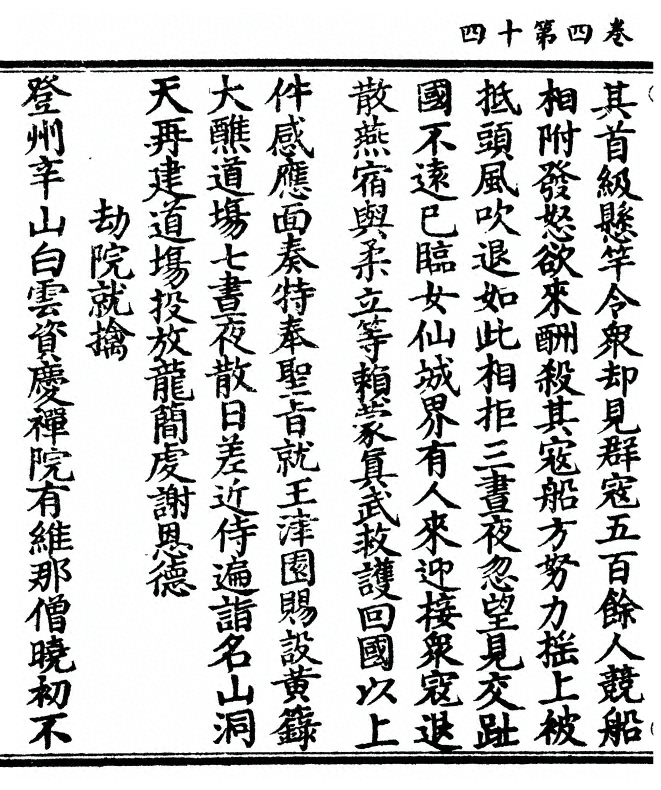 卷四第十四
其首級懸竿令衆却見群寇五百餘人競船
相附發怒欲來酬殺其寇船方努力搖上被
抵頭風吹退如此相拒三晝夜忽望見交趾
國不遠已臨女仙城界有人來迎接衆寇退
散燕宿與柔立等賴蒙眞武救護回國以上
件感應面奏特奉聖旨就玉津園賜設黃籙
大醮道場七晝夜散日差近侍遍詣名山洞
天再建道場投放龍簡虔謝恩德
劫院就擒
登州辛山白雲資慶禪院有維那僧曉初不